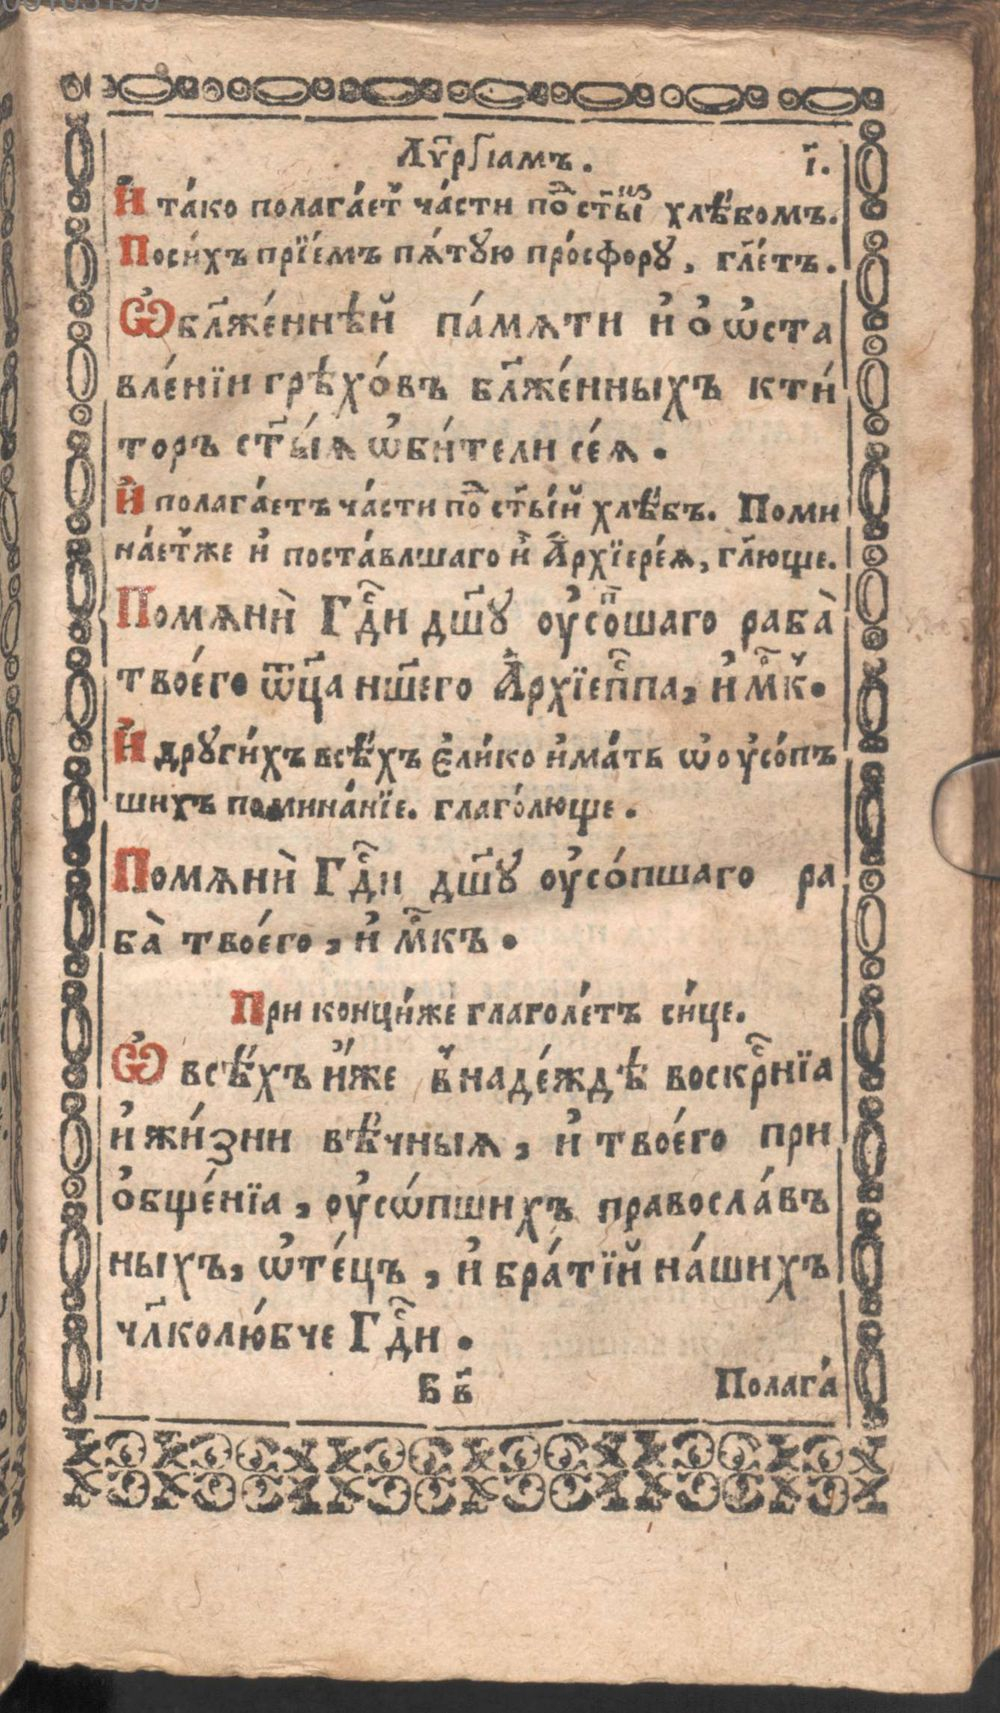 Лѵ҃рГіамъ. і҃.
И҆ та́ко полага́ет҆ ча́сти поⷣ ст҃ыⷨ хлѣ́бомъ.
Поси́хъ прїе́мъ пѧ́тꙋю про́сфорꙋ, гл҃етъ.
Ѽ бл҃же́ннѣй па́мѧти и҆ о҆ ѡ҆ста
вле́нїи грѣхо́въ бл҃же́нныхъ кти́
торъ ст҃ы́ѧ ѡ҆би́тели сеѧ̀.
И҆ полага́етъ ча́сти поⷣ ст҃ы́й хлѣ́бъ. Поми
на́ет҆же и҆ поста́влшаго и҆ А҆рхїере́ѧ, гл҃юще.
Помѧнѝ Гдⷭ҇и дш҃ꙋ оу҆со́пⷲшаго рабà
твоего̀ ѿц҃а нш҃его А҆рхїепⷭ҇па, и҆мⷬ҇къ.
И҆ други́хъ всѣ́хъ є҆ли́ко и҆мать ѡ҆ оу҆со́пъ
шихъ помина́нїе. глаго́люще.
Помѧнѝ Гдⷭ҇и дш҃ꙋ оу҆со́пшаго ра
бà твоего̀, и҆ мⷬ҇къ.
При конци́же глаголе́тъ си́це.
Ѽ всѣ́хъ и҆́же в҆наде́ждѣ воскрⷭ҇нїа
и҆ жи́зни вѣ́чныѧ, и҆ твоего̀ при
ѻ҆бще́нїа, оу҆сѡ́пшихъ правосла́въ
ныхъ, ѡ҆те́цъ, и҆ бра́тїй на́шихъ
чл҃колю́бче Гдⷭ҇и.
Б в҃ Полага́